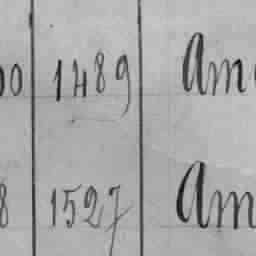 00 1489 Am
8 1527 Am